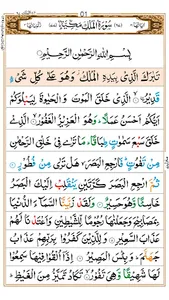 سُوْرَةُ الْمُلْكِ مَكِّيَّةٌ
بِسْمِ اللّٰهِ الرَّحْمٰنِ الرَّحِيْمِ
تَبٰرَكَ الَّذِيْ بِيَدِهِ الْمُلْكُ وَهُوَ عَلٰى كُلِّ شَيْءٍ
قَدِيْرُ ۨ الَّذِيْ خَلَقَ الْمَوْتَ وَالْحَيٰوةَ لِيَبْلُوَكُمْ
اَيُّكُمْ اَحْسَنُ عَمَلًا ؕ وَهُوَ الْعَزِيْزُ الْغَفُوْرُ ۙ الَّذِيْ
خَلَقَ سَبْعَ سَمٰوٰتٍ طِبَاقًا ؕ مَا تَرٰى فِيْ خَلْقِ الرَّحْمٰنِ
مِنْ تَفٰوُتٍ ؕ فَارْجِعِ الْبَصَرَ ۙ هَلْ تَرٰى مِنْ فُطُوْرٍ
ثُمَّ ارْجِعِ الْبَصَرَ كَرَّتَيْنِ يَنْقَلِبْ اِلَيْكَ الْبَصَرُ
خَاسِئًا وَّهُوَ حَسِيْرٌ وَلَقَدْ زَيَّنَّا السَّمَآءَ الدُّنْيَا
بِمَصَابِيْحَ وَجَعَلْنٰهَا رُجُوْمًا لِّلشَّيٰطِيْنِ وَاَعْتَدْنَا لَهُمْ
عَذَابَ السَّعِيْرِ وَلِلَّذِيْنَ كَفَرُوْا بِرَبِّهِمْ عَذَابُ
جَهَنَّمَ ؕ وَبِئْسَ الْمَصِيْرُ اِذَآ اُلْقُوْا فِيْهَا سَمِعُوْا
لَهَا شَهِيْقًا وَّهِيَ تَفُوْرُ ۙ تَكَادُ تَمَيَّزُ مِنَ الْغَيْظِ